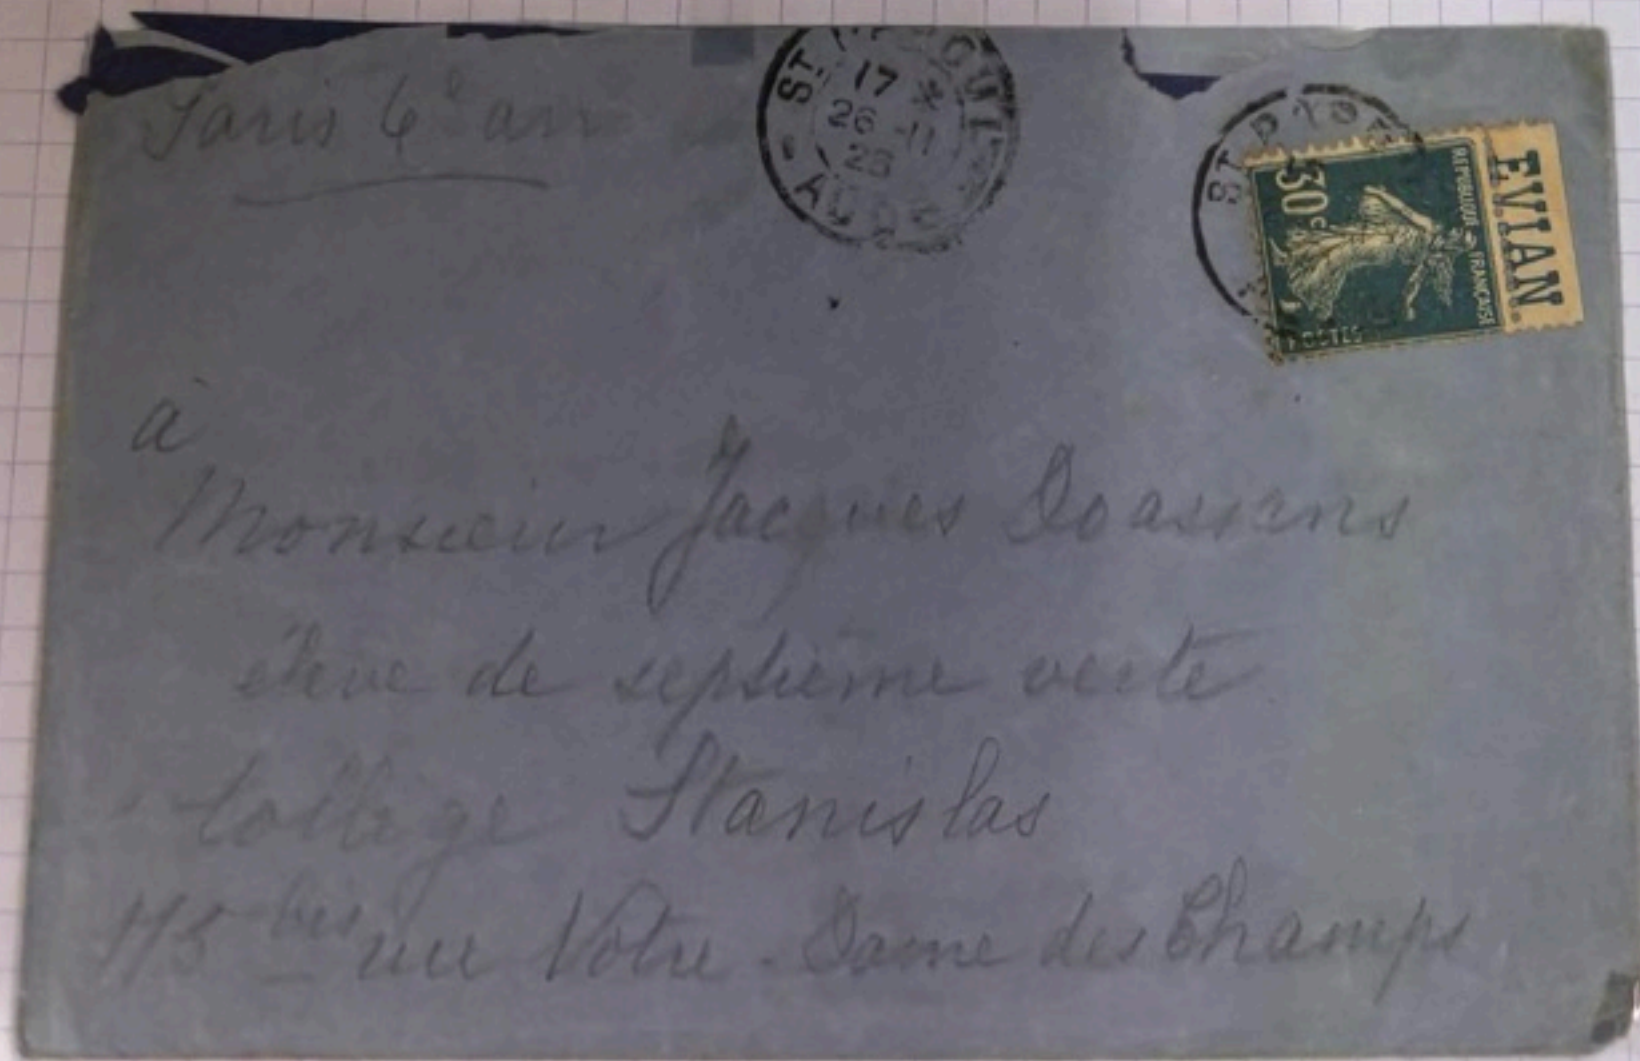 Paris 6e arr
17
26-11
AUDE
30c
REPUBLIQUE FRANÇAISE
POSTES
EVIAN
à
Monsieur Jacques Doassans
élève de septième verte
Collège Stanislas
bis rue Notre-Dame des Champs